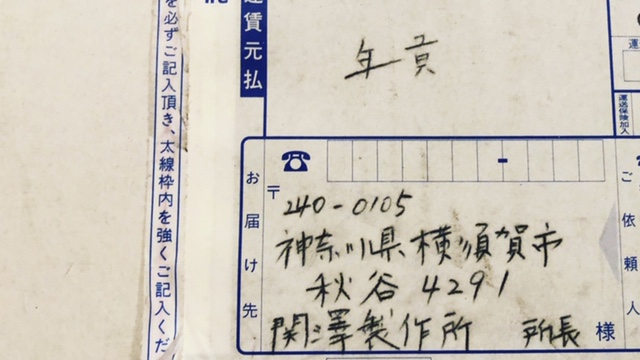 運賃元払
を必ずご記入頂き、太線枠内を強くご記入くだ
年貢
運送保険加入
お届け先
〒
240-0105
神奈川県横須賀市
秋谷4291
関澤製作所 所長 様
ご依頼人